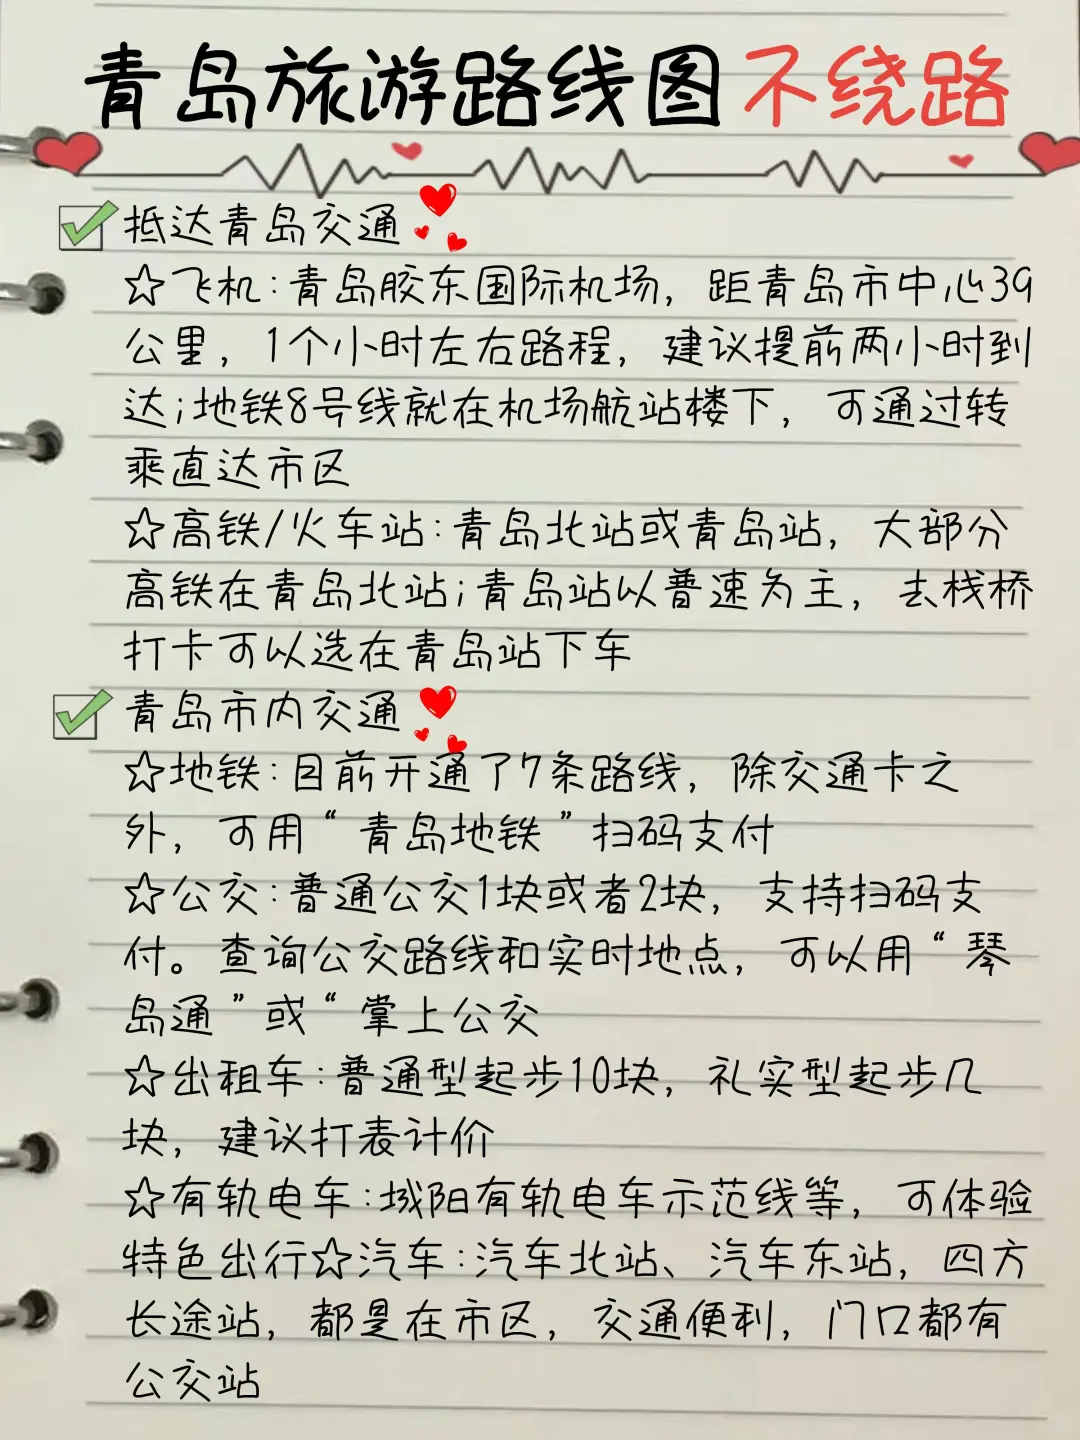 青岛旅游路线图 不绕路
抵达青岛交通
☆飞机:青岛胶东国际机场，距青岛市中心39
公里，1个小时左右路程，建议提前两小时到
达;地铁8号线就在机场航站楼下，可通过转
乘直达市区
☆高铁/火车站:青岛北站或青岛站，大部分
高铁在青岛北站;青岛站以普速为主，去栈桥
打卡可以选在青岛站下车
青岛市内交通
☆地铁:目前开通了7条路线，除交通卡之
外，可用“青岛地铁”扫码支付
☆公交:普通公交1块或者2块，支持扫码支
付。查询公交路线和实时地点，可以用“琴
岛通”或“掌上公交
☆出租车:普通型起步10块，礼宾型起步几
块，建议打表计价
☆有轨电车:城阳有轨电车示范线等，可体验
特色出行☆汽车:汽车北站、汽车东站，四方
长途站，都是在市区，交通便利，门口都有
公交站